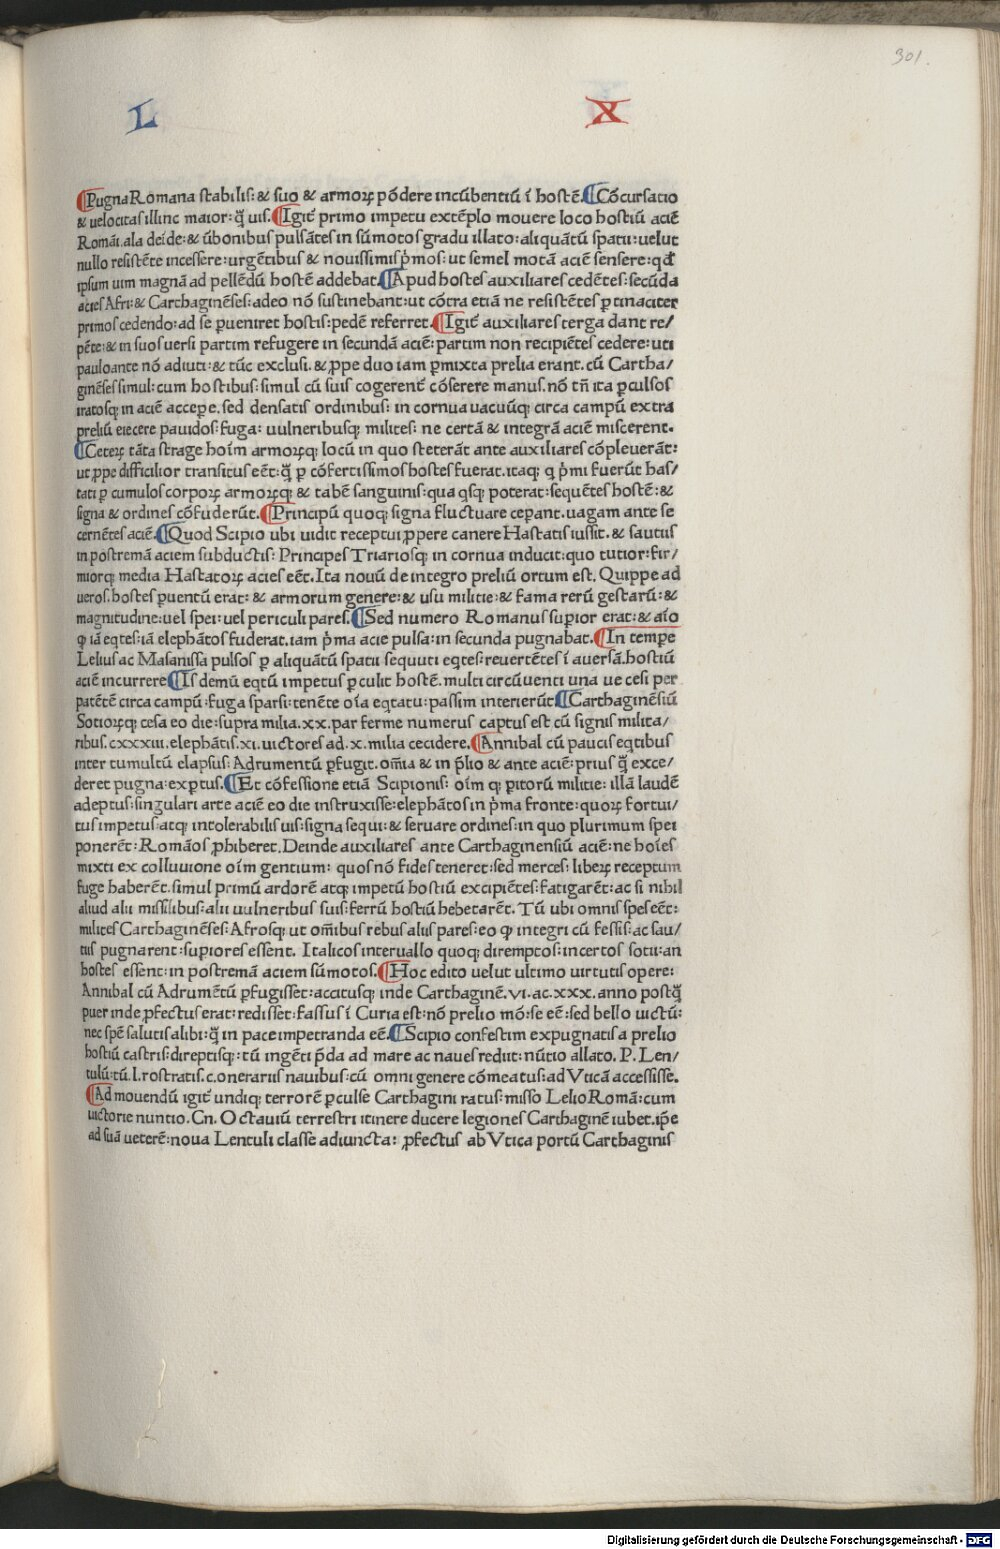 301.
L X
¶Pugna Romana stabilis: & suo & armoꝝ põdere incũbentiũ ĩ hostẽ. ¶Cõcursatio
& uelocitas illinc maior: q̃ uis. ¶Igit̃ primo impetu extẽplo mouere loco hostiũ aciẽ
Romãi. ala deĩde: & ũbonibus pulsãtes in sũmotos gradu illato: aliquãtũ spatii: uelut
nullo resistẽte incessere: urgẽtibus & nouissimis p̃mos: ut semel motã aciẽ sensere: qđ
ipsum uim magnã ad pellẽdũ hostẽ addebat. ¶Apud hostes auxiliares cedẽtes: secũda
acies Afri: & Carthaginẽses: adeo nõ sustinebant: ut cõtra etiã ne resistẽtes ꝑtinaciter
primos cedendo: ad se ꝑueniret hostis: pedẽ referret. ¶Igit̃ auxiliares terga dant re/
pẽte: & in suos uersi partim refugere in secundã aciẽ: partim non recipiẽtes cedere: uti
paulo ante nõ adiuti: & tũc exclusi. & ꝓpe duo iam ꝑmixta prelia erant. cũ Cartha/
ginẽses simul: cum hostibus: simul cũ suis cogerent̃ cõserere manus. nõ tñ ita ꝑculsos
iratosqꝫ in aciẽ accepere. sed densatis ordinibus: in cornua uacuũqꝫ circa campũ extra
preliũ eiecere pauidos: fuga: uulneribusqꝫ milites: ne certã & integrã aciẽ miscerent.
¶Ceteꝝ tãta strage hoĩm armoꝝqꝫ locũ in quo steterãt ante auxiliares cõpleuerãt:
ut ꝓpe difficilior transitus eẽt: q̃ ꝑ cõfertissimos hostes fuerat. itaqꝫ q p̃mi fuerũt has/
tati ꝑ cumulos corpoꝝ armoꝝqꝫ & tabẽ sanguinis: qua qsqꝫ poterat: sequẽtes hostẽ: &
signa & ordines cõfuderũt. ¶Principũ quoqꝫ signa fluctuare ceperant. uagam ante se
cernẽtes aciẽ. ¶Quod Scipio ubi uidit receptui ꝓpere canere Hastatis iussit. & sautiis
in postremã aciem subductis: Principes Triariosqꝫ in cornua inducit: quo tutior: fir/
miorqꝫ media Hastatoꝝ acies eẽt. Ita nouũ de integro preliũ ortum est. Quippe ad
ueros. hostes ꝑuentũ erat: & armorum genere: & usu militie: & fama rerũ gestarũ: &
magnitudine: uel spei: uel periculi pares. ¶Sed numero Romanus supior erat: & aĩo
ꝙ iã eqtes: iã elephãtos fuderat. iam p̃ma acie pulsa: in secunda pugnabat. ¶In tempe
Lelius ac Masanissa pulsos ꝑ aliquãtũ spatii sequuti eqtes: reuertẽtes ĩ auersã. hostiũ
aciẽ incurrere ¶Is demũ eqtũ impetus ꝑculit hostẽ. multi circũuenti una ue cesi per
patẽtẽ circa campũ: fuga sparsi: tenẽte oĩa eqtatu: passim interierũt. ¶Carthaginẽsiũ
Sotioꝝqꝫ cesa eo die: supra milia. xx. par ferme numerus captus est cũ signis milita/
ribus. cxxxiii. elephãtis. xi. uictores ad. x. milia cecidere. ¶Annibal cũ paucis eqtibus
inter tumultũ elapsus: Adrumentũ ꝑfugit. oĩa & in p̃lio & ante aciẽ: prius q̃ exce/
deret pugna: expertus. ¶Et cõfessione etiã Scipionis: oĩm qꝫ ꝑitorũ militie: illã laudẽ
adeptus: singulari arte aciẽ eo die instruxisse: elephãtos in p̃ma fronte: quoꝝ fortui/
tus impetus: atqꝫ intolerabilis uis: signa sequi: & seruare ordines: in quo plurimum spei
ponerẽt: Romãos ꝓhiberet. Deinde auxiliares ante Carthaginensiũ aciẽ: ne hoĩes
mixti ex colluuione oĩm gentium: quos nõ fides teneret: sed merces: libeꝝ receptum
fuge haberẽt. simul primũ ardorẽ atqꝫ impetũ hostiũ excipiẽtes: fatigarẽt: ac si nihil
aliud alii missilibus: alii uulneribus suis: ferrũ hostiũ hebetarẽt. Tũ ubi omnis spes eẽt:
milites Carthaginẽses: Afrosqꝫ ut oĩbus rebus aliis pares: eo ꝙ integri cũ fessis: ac sau/
tiis pugnarent: supiores essent. Italicos interuallo quoqꝫ diremptos: incertos sotii: an
hostes essent: in postremã aciem sũmotos. ¶Hoc edito uelut ultimo uirtutis opere:
Annibal cũ Adrumẽtũ ꝑfugisset: accitusqꝫ inde Carthaginẽ. vi. ac. xxx. anno postq̃
puer inde ꝓfectus erat: redisset: fassus ĩ Curia est: nõ prelio mõ: se eẽ: sed bello uictũ:
nec spẽ salutis alibi: q̃ in pace impetranda eẽ. ¶Scipio confestim expugnatis a prelio
hostiũ castris: direptisqꝫ: tũ ingẽti p̃da ad mare ac naues rediit: nũtio allato. P. Len/
tulũ: tũ. l. rostratis. c. onerariis nauibus: cũ omni genere cõmeatus: ad Vticã accessisse.
¶Ad mouendũ igit̃ undiqꝫ terrorẽ ꝑculse Carthagini ratus: misso Lelio Romã: cum
uictorie nuntio. Cn. Octauiũ terrestri itinere ducere legiones Carthaginẽ iubet. ip̃e
ad suã ueterẽ: noua Lentuli classe adiuncta: ꝓfectus ab Vtica portũ Carthaginis
Digitalisierung gefördert durch die Deutsche Forschungsgemeinschaft - DFG